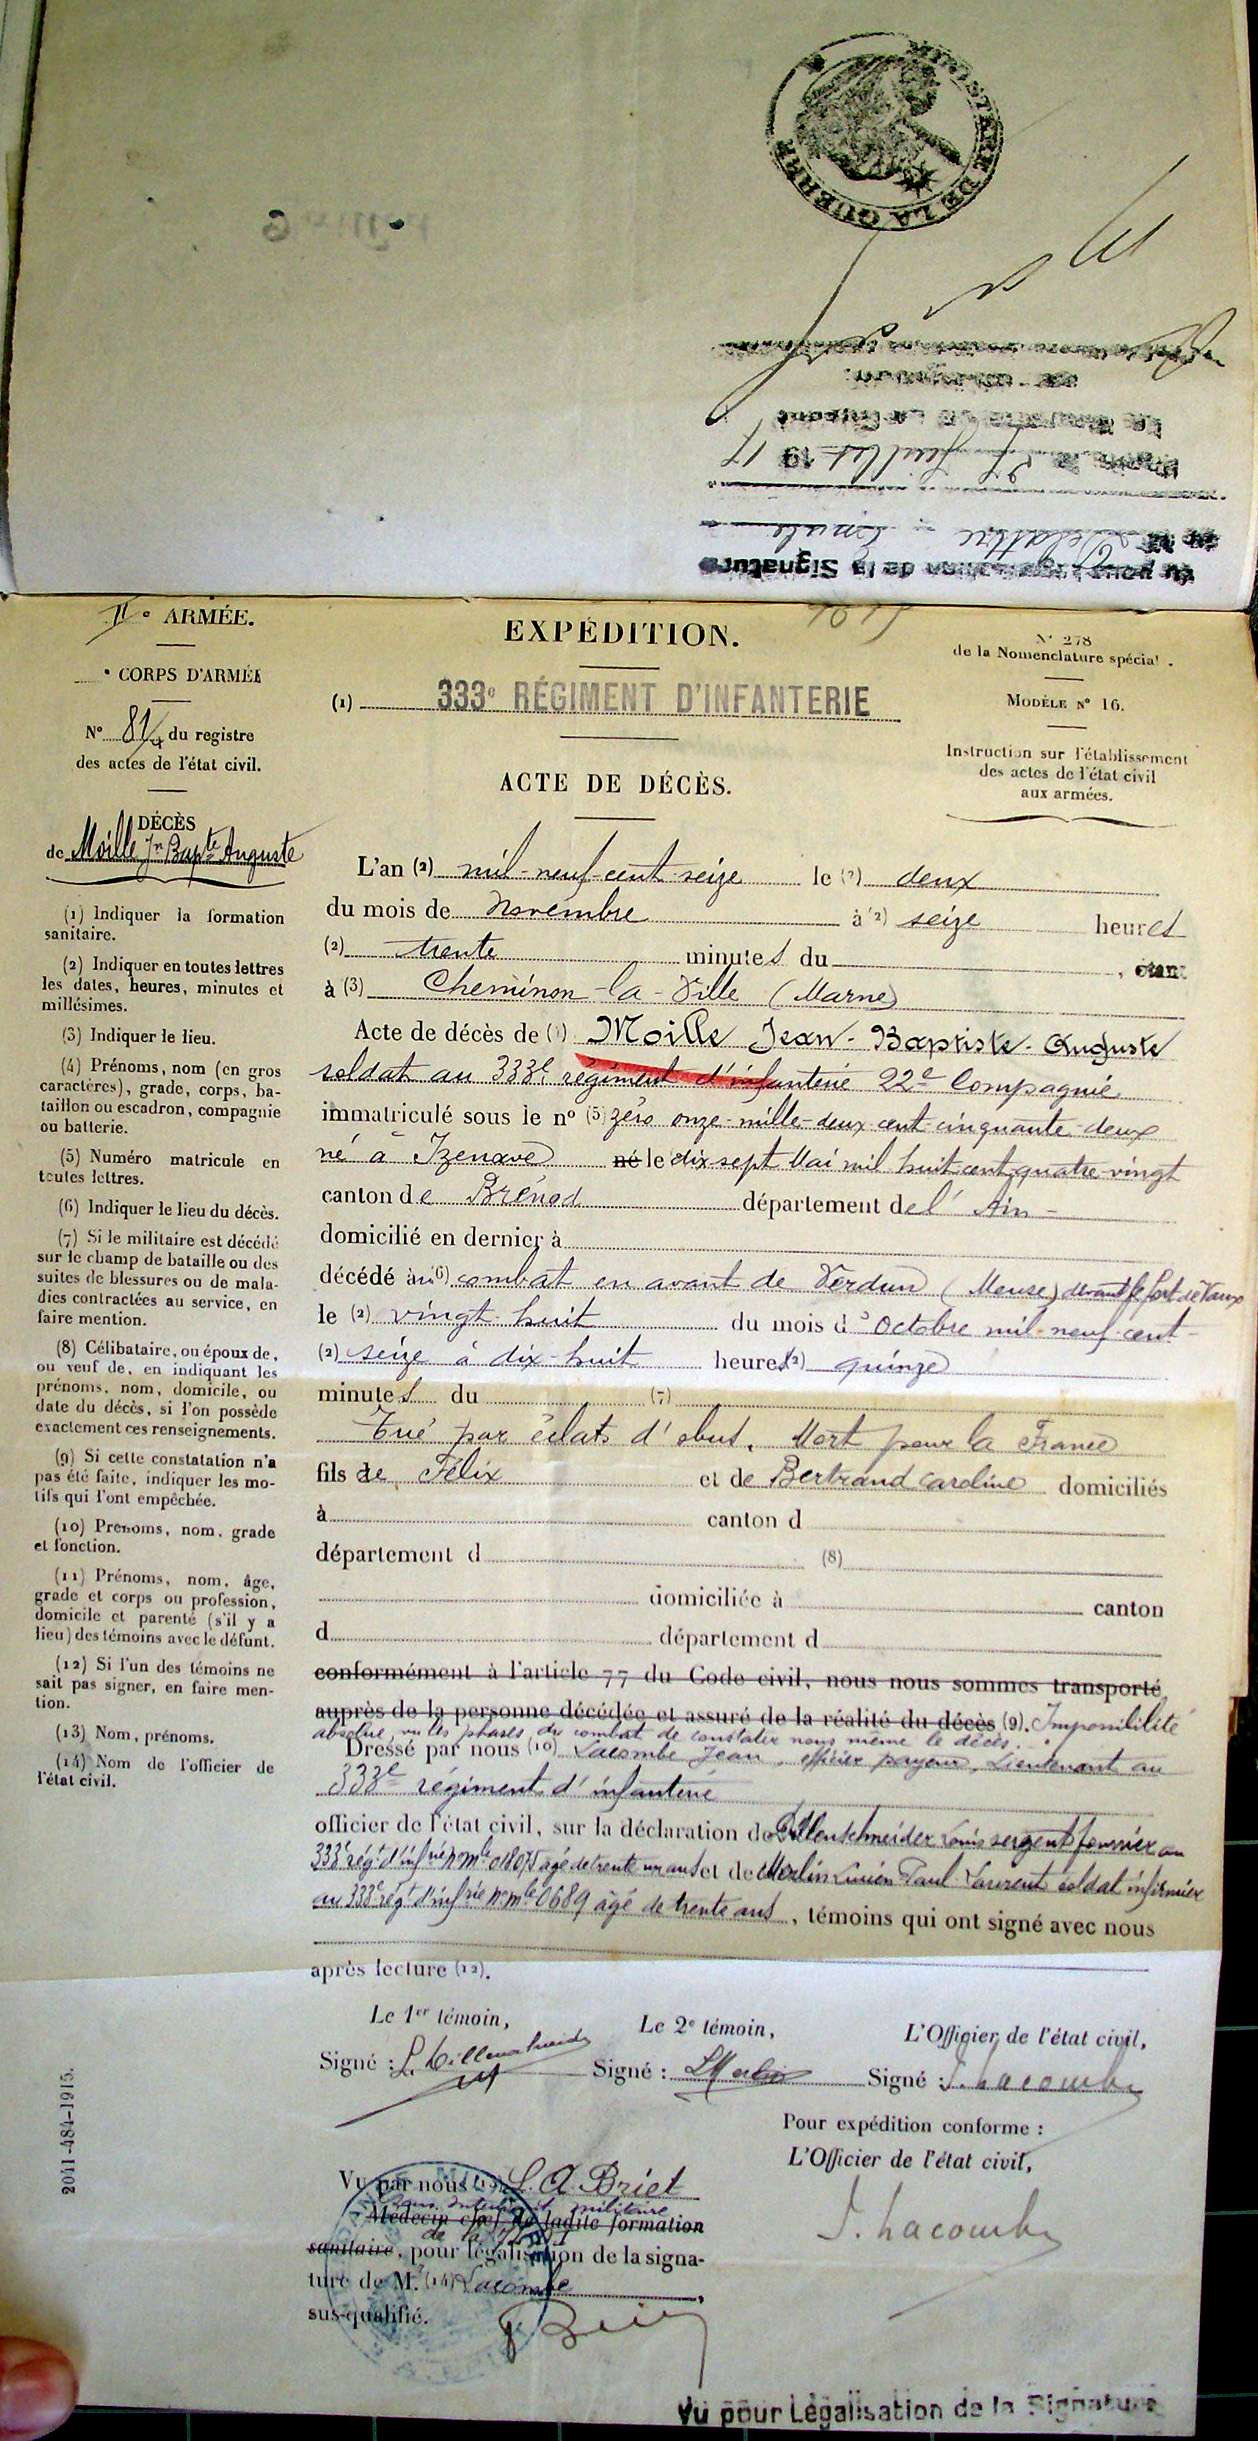 MINISTÈRE DE LA GUERRE
Juillet 19 17
Delattre
Vu pour Légalisation de la Signature
II e ARMÉE.
e CORPS D'ARMÉE
N° 81/4 du registre
des actes de l'état civil.
DÉCÈS
de Moille Jn Bapte Auguste
(1) Indiquer la formation
sanitaire.
(2) Indiquer en toutes lettres
les dates, heures, minutes et
millésimes.
(3) Indiquer le lieu.
(4) Prénoms, nom (en gros
caractères), grade, corps, ba-
taillon ou escadron, compagnie
ou batterie.
(5) Numéro matricule en
toutes lettres.
(6) Indiquer le lieu du décès.
(7) Si le militaire est décédé
sur le champ de bataille ou des
suites de blessures ou de mala-
dies contractées au service, en
faire mention.
(8) Célibataire, ou époux de,
ou veuf de, en indiquant les
prénoms, nom, domicile, ou
date du décès, si l'on possède
exactement ces renseignements.
(9) Si cette constatation n'a
pas été faite, indiquer les mo-
tifs qui l'ont empêchée.
(10) Prénoms, nom, grade
et fonction.
(11) Prénoms, nom, âge,
grade et corps ou profession,
domicile et parenté (s'il y a
lieu) des témoins avec le défunt.
(12) Si l'un des témoins ne
sait pas signer, en faire men-
tion.
(13) Nom, prénoms.
(14) Nom de l'officier de
l'état civil.
2041-484-1915.
EXPÉDITION.
(1) 333e RÉGIMENT D'INFANTERIE
ACTE DE DÉCÈS.
N° 278
de la Nomenclature spécial.
MODÈLE N° 16.
Instruction sur l'établissement
des actes de l'état civil
aux armées.
L'an (2) mil-neuf-cent-seize le (2) deux
du mois de Novembre à (2) seize heures
(2) trente minutes du , étant
à (3) Cheminon-la-Ville (Marne)
Acte de décès de (4) Moille Jean-Baptiste-Auguste
soldat au 333e régiment d'infanterie 22e Compagnie
immatriculé sous le n° (5) zéro onze-mille-deux cent-cinquante-deux
né à Izenave né le dix sept Mai mil huit cent quatre-vingt
canton de Brénod département de l'Ain
domicilié en dernier à
décédé au (6) combat en avant de Verdun (Meuse) devant le fort de Vaux
le (2) vingt-huit du mois d'Octobre mil-neuf-cent-
(2) seize à dix-huit heures (2) quinze
minutes du (7)
Tué par éclats d'obus. Mort pour la France
fils de Félix et de Bertrand Caroline domiciliés
à canton d
département d (8)
domiciliée à canton
d département d
conformément à l'article 77 du Code civil, nous nous sommes transporté
auprès de la personne décédée et assuré de la réalité du décès (9). Impossibilité
absolue, vu les phases du combat de constater nous même le décès.
Dressé par nous (10) Lacombe Jean, officier payeur, Lieutenant au
333e régiment d'infanterie
officier de l'état civil, sur la déclaration de Louis sergent fourrier au
333e régt d'infrie n° mle 018075 agé de trente un ans et de Merlin Lucien Paul Laurent soldat infirmier
au 333e régt d'infrie n° mle 0689 âgé de trente ans, témoins qui ont signé avec nous
après lecture (12).
Le 1er témoin,
Signé :
Le 2e témoin,
Signé : L Merlin
L'Officier de l'état civil,
Signé : J. Lacombe
Pour expédition conforme :
L'Officier de l'état civil,
J. Lacombe
Vu par nous (13) L. A. Briet
Sous Intendant militaire
Médecin chef de ladite formation
de la
sanitaire, pour légalisation de la signa-
ture de M. (14) Lacombe,
sus-qualifié.
Vu pour Légalisation de la Signature